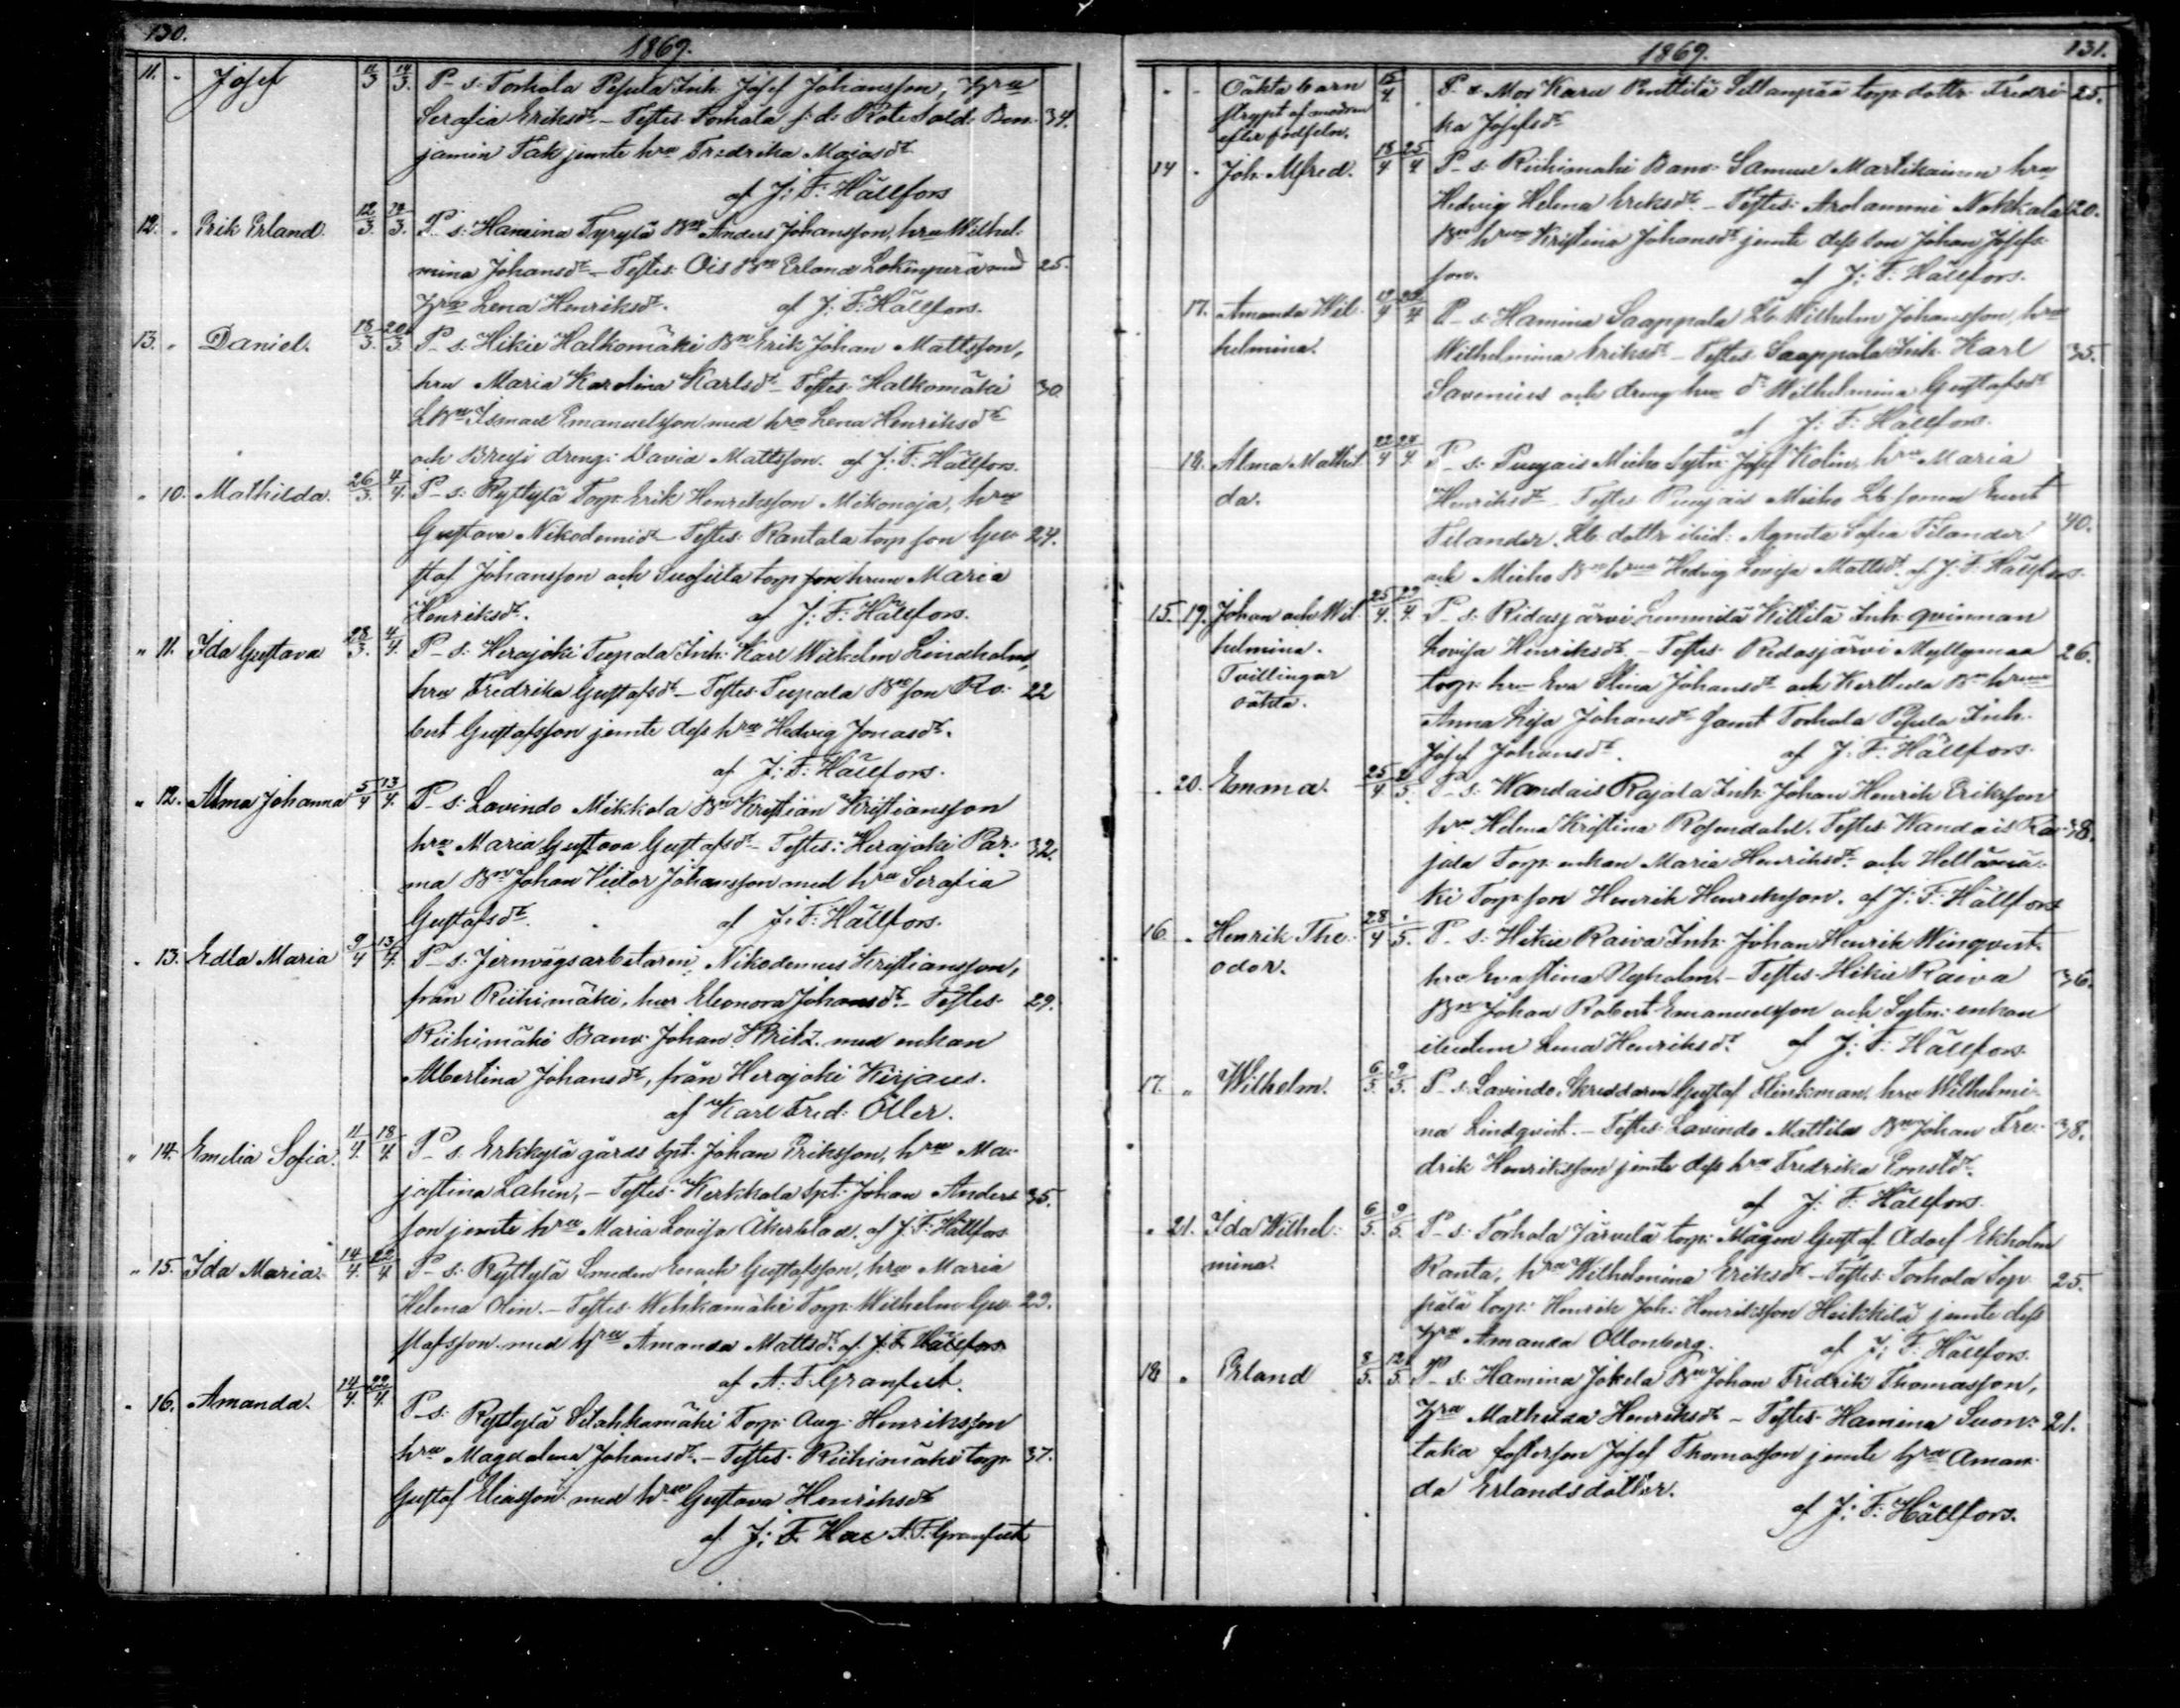 130.
1869.
11. - Josef 11/3 14/3. P-s: Torhola Pesula Inh. Josef Johansson, Hru
Serafia Eriksdr. - Testes: Tomola f.d. Rote Sold. Ben- 34.
jamin Tak jemte hru Fredrika Majasdr
af J: F: Hällfors
12. " Erik Erland. 12/3. 14/3. P-s: Hamina Tyrylä Bn Anders Johansson, hru Wilhel-
mina Johansdr - Testes: Ois Bn Erland Lokinperä med 25.
Hru Lena Henriksdr. af J: F: Hällfors.
13. " Daniel. 18/3. 20/3. P-s: Hikie Halkomäki Bn Erik Johan Mattsson,
hru Maria Karolina Karlsdr - Testes: Halkomäki 30
Ismael Emanuelsson med hru Lena Henriksdr
och dreng: David Mattsson. af J: F: Hällfors.
" 10. Mathilda. 26/3. 4/4. P-s: Ryttylä Torp: Erik Henriksson Mikonoja, hru
Gustava Nikodemidr - Testes: Rantala torp son Gu- 24.
staf Johansson och torp son hrun Maria
Henriksdr. af J: F: Hällfors.
" 11. Ida Gustava 28/3. 4/4. P-s: Herajoki Tupala Inh: Karl Wilhelm Lindholm,
hru Fredrika Gustafsdr - Testes: Tupala Bn son Ro- 22
bert Gustafsson jemte dess hru Hedvig Jonasdr.
af J: F: Hällfors.
" 12. Alma Johanna 5/4 13/4. P-s: Lavindo Mikkola Bn Kristian Kristiansson
hru Maria Gustava Gustafsdr - Testes: Herajoki Par- 32.
ma Bn Johan Victor Johansson med hru Serafia
Gustafsdr. af J: F: Hällfors.
" 13. Edla Maria 9/4 13/4. P-s: Jernvägsarbetaren Nikodemus Kristiansson,
från Riihimäki, hru Eleonora Johansdr - Testes: 29.
Riihimäki Banv: Johan Britz med enkan
Albertina Johansdr, från Herajoki Kirjaus.
af Karl Fred: Öller.
" 14. Emelia Sofia. 11/4. 18/4. P-s. Erkkylä gårds Spt. Johan Eriksson, hru Ma-
jastina Lahin, - Testes: Kerkkola Spt: Johan Anders- 35.
son jemte hru Maria Lovisa Åkerblad. af J: F: Hällfors
" 15. Ida Maria. 14/4. 22/4. P-s: Ryttylä Smeden Enoch Gustafsson, hru Maria
Helena Olin. - Testes: Wehkamäki Torp: Wilhelm Gu- 29.
stafsson med hru Amanda Mattsdr. af J: F. Hällfors
af A. F. Granfelt.
" 16. Amanda. 14/4. 22/4. P-s: Ryttylä Sitahkamäki Torp: Aug: Henriksson
hru Magdalena Johansdr. - Testes: Riihimäki torp 37.
Gustaf Eliasson med hru Gustava Henriksdr
af J: F. A. F. Granfelt
1869. 131.
" - Oäkta barn 15/4. P-s Mor Karu Penttilä Siltanpää torp dottr Fredri- 25.
strypt af modren ka Josefsdr
efter födseln.
14 " Joh: Alfred. 18/4 25/4 P-s: Riihimäki Banv: Samuel Martikainen hru
Hedvig Helena Eriksdr - Testes: Arolammi Nokkala 20.
Bn hru Kristina Johansdr jemte dess son Johan Josefs-
son. af J: F: Hällfors.
17. Amanda Wil- P-s: Hamina Saappala Lb Wilhelm Johansson, hru
helmina. Wilhelmina Eriksdr - Testes: Saappala Inh. Karl 35.
Savenius och dreng hru dr Wilhelmina Gustafsdr
af J: F: Hällfors.
18. Alma Mathil- 22/4 24/4. P-s: Punjais Micho Sytn: Josef Kolin, hru Maria
da. Henriksdr - Testes Punjais Micho Lb sonen Ernst
Tilander. Lb: dottr ibid: Agneta Sofia Tilander 40.
och Micho Bn hru Hedvig Lovisa Mattsdr. af J: F. Hällfors.
15. 19. Johan och Wil- 25/4. 29/4. P-s: Ridasjärvi Kittilä Inh. qvinnan
helmina. Lovisa Henriksdr. - Testes: Ridasjärvi Myllymaa 26.
Tvillingar torp. hru Eva Stina Johansdr och Kerttula Bn hru
oäkta. Anna Lisa Johansdr samt Torhola Pesula Inh.
Josef Johansdr. af J: F. Hällfors.
" 20. Emma. 25/4. 2/5. P-s: Wandais Rajala Inh. Johan Henrik Eriksson
hru Helena Kristina Rosendahl. Testes: Wandais Ra- 38.
jala Torp. enkan Maria Henriksdr och Hellämä-
ki Torp son Henrik Henriksson. af J: F. Hällfors
16. " Henrik The- 28/4 /5. P-s: Hikie Raiva Inh. Johan Henrik Winqvist.
odor. hru Eva Stina Nyholm. - Testes: Hikie Raiva 36.
Bn Johan Robert Emanuelsson och Sytn: enkan
ibidem Lena Henriksdr. af J: F: Hällfors.
17. " Wilhelm. 6/5. 9/5. P-s: Lavindo, Skreddaren Gustaf Flinkman, hru Wilhelmi-
na Lindqvist. - Testes: Lavindo Mattila Bn Johan Fre- 38.
drik Henriksson jemte dess hru Fredrika Ernstdr.
af J: F: Hällfors.
" 21. Ida Wilhel- 6/5. 9/5. P-s: Torhola Järvelä torp: Mågen Gustaf Adolf Ekholm
mina. Ranta, hru Wilhelmina Eriksdr - Testes: Torhola Sep- 25.
pälä torp: Henrik Joh: Henriksson Heikkilä jemte dess
Hru Amanda Ollonberg. af J: F: Hällfors.
18 " Erland 8/5. 12/5. P-s: Hamina Jokela Bn Johan Fredrik Thomasson,
Hru Mathilda Henriksdr - Testes: Hamina Suon- 21.
taka fosterson Josef Thomasson jemte hru Aman-
da Erlandsdotter.
af J: F: Hällfors.